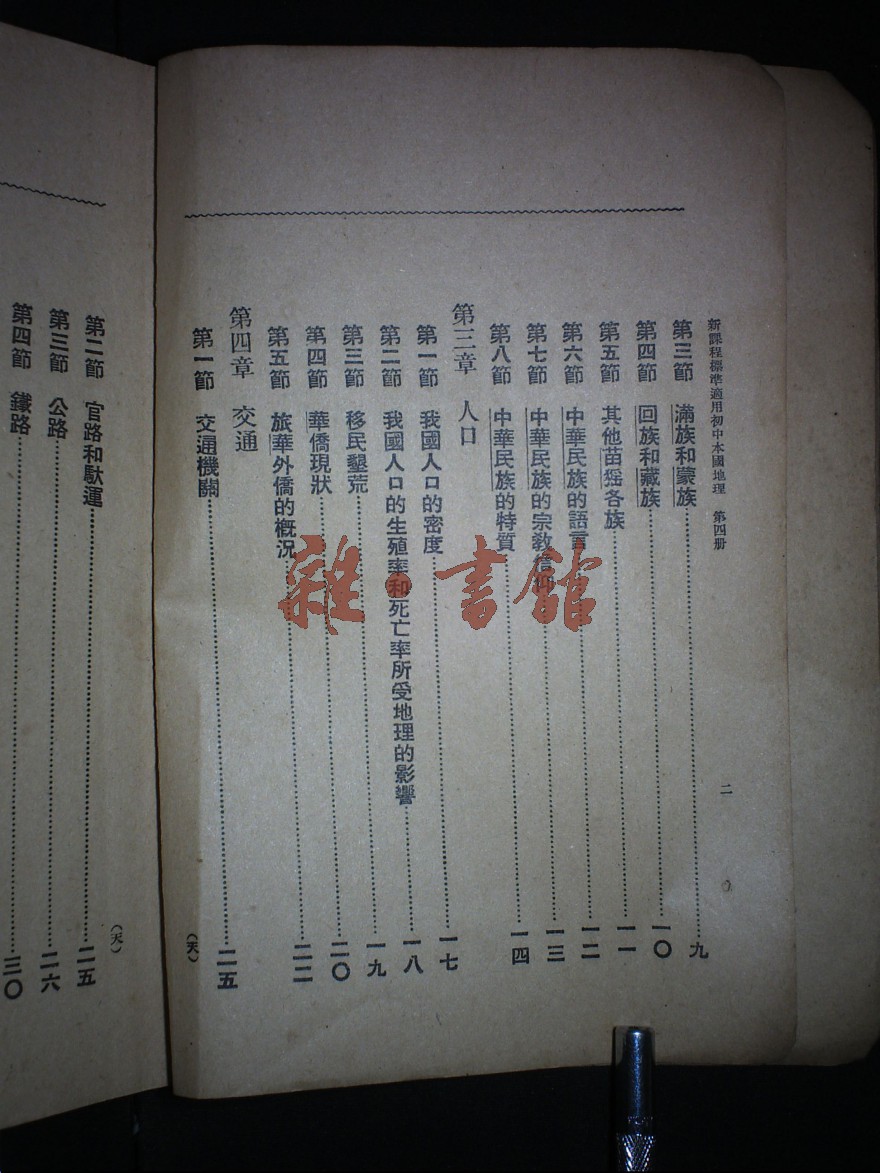 新課程標準適用初中本國地理　第四册
二
第三節　滿族和蒙族……九
第四節　回族和藏族……一〇
第五節　其他苗猺各族……一一
第六節　中華民族的語言……一二
第七節　中華民族的宗教信仰……一三
第八節　中華民族的特質……一四
第三章　人口
第一節　我國人口的密度……一七
第二節　我國人口的生殖率和死亡率所受地理的影響……一八
第三節　移民墾荒……一九
第四節　華僑現狀……二〇
第五節　旅華外僑的概況……二二
第四章　交通
第一節　交通機關……二五
（天）
第二節　官路和馱運……二五
第三節　公路……二六
第四節　鐵路……三〇
（天）
雜·書館